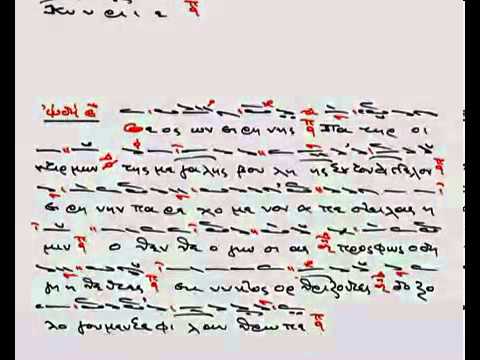 Κυ υ ρι ι ε
ᾠδὴ ε΄
Θε ος ων ει ρη νης Πα τηρ οι
κτιρ μων της με γα λης βου λη ης σου τον Αγ γε λον
ει ρη νην πα ρε χο με νον α πε στει λας η
μιν ο θεν θε ο γνω σι ας προς φως ο δη
γη θεν τες εκ νυ κτος ορ θρι ζον τες δο ξο
λο γου μεν σε φι λαν θρω πε